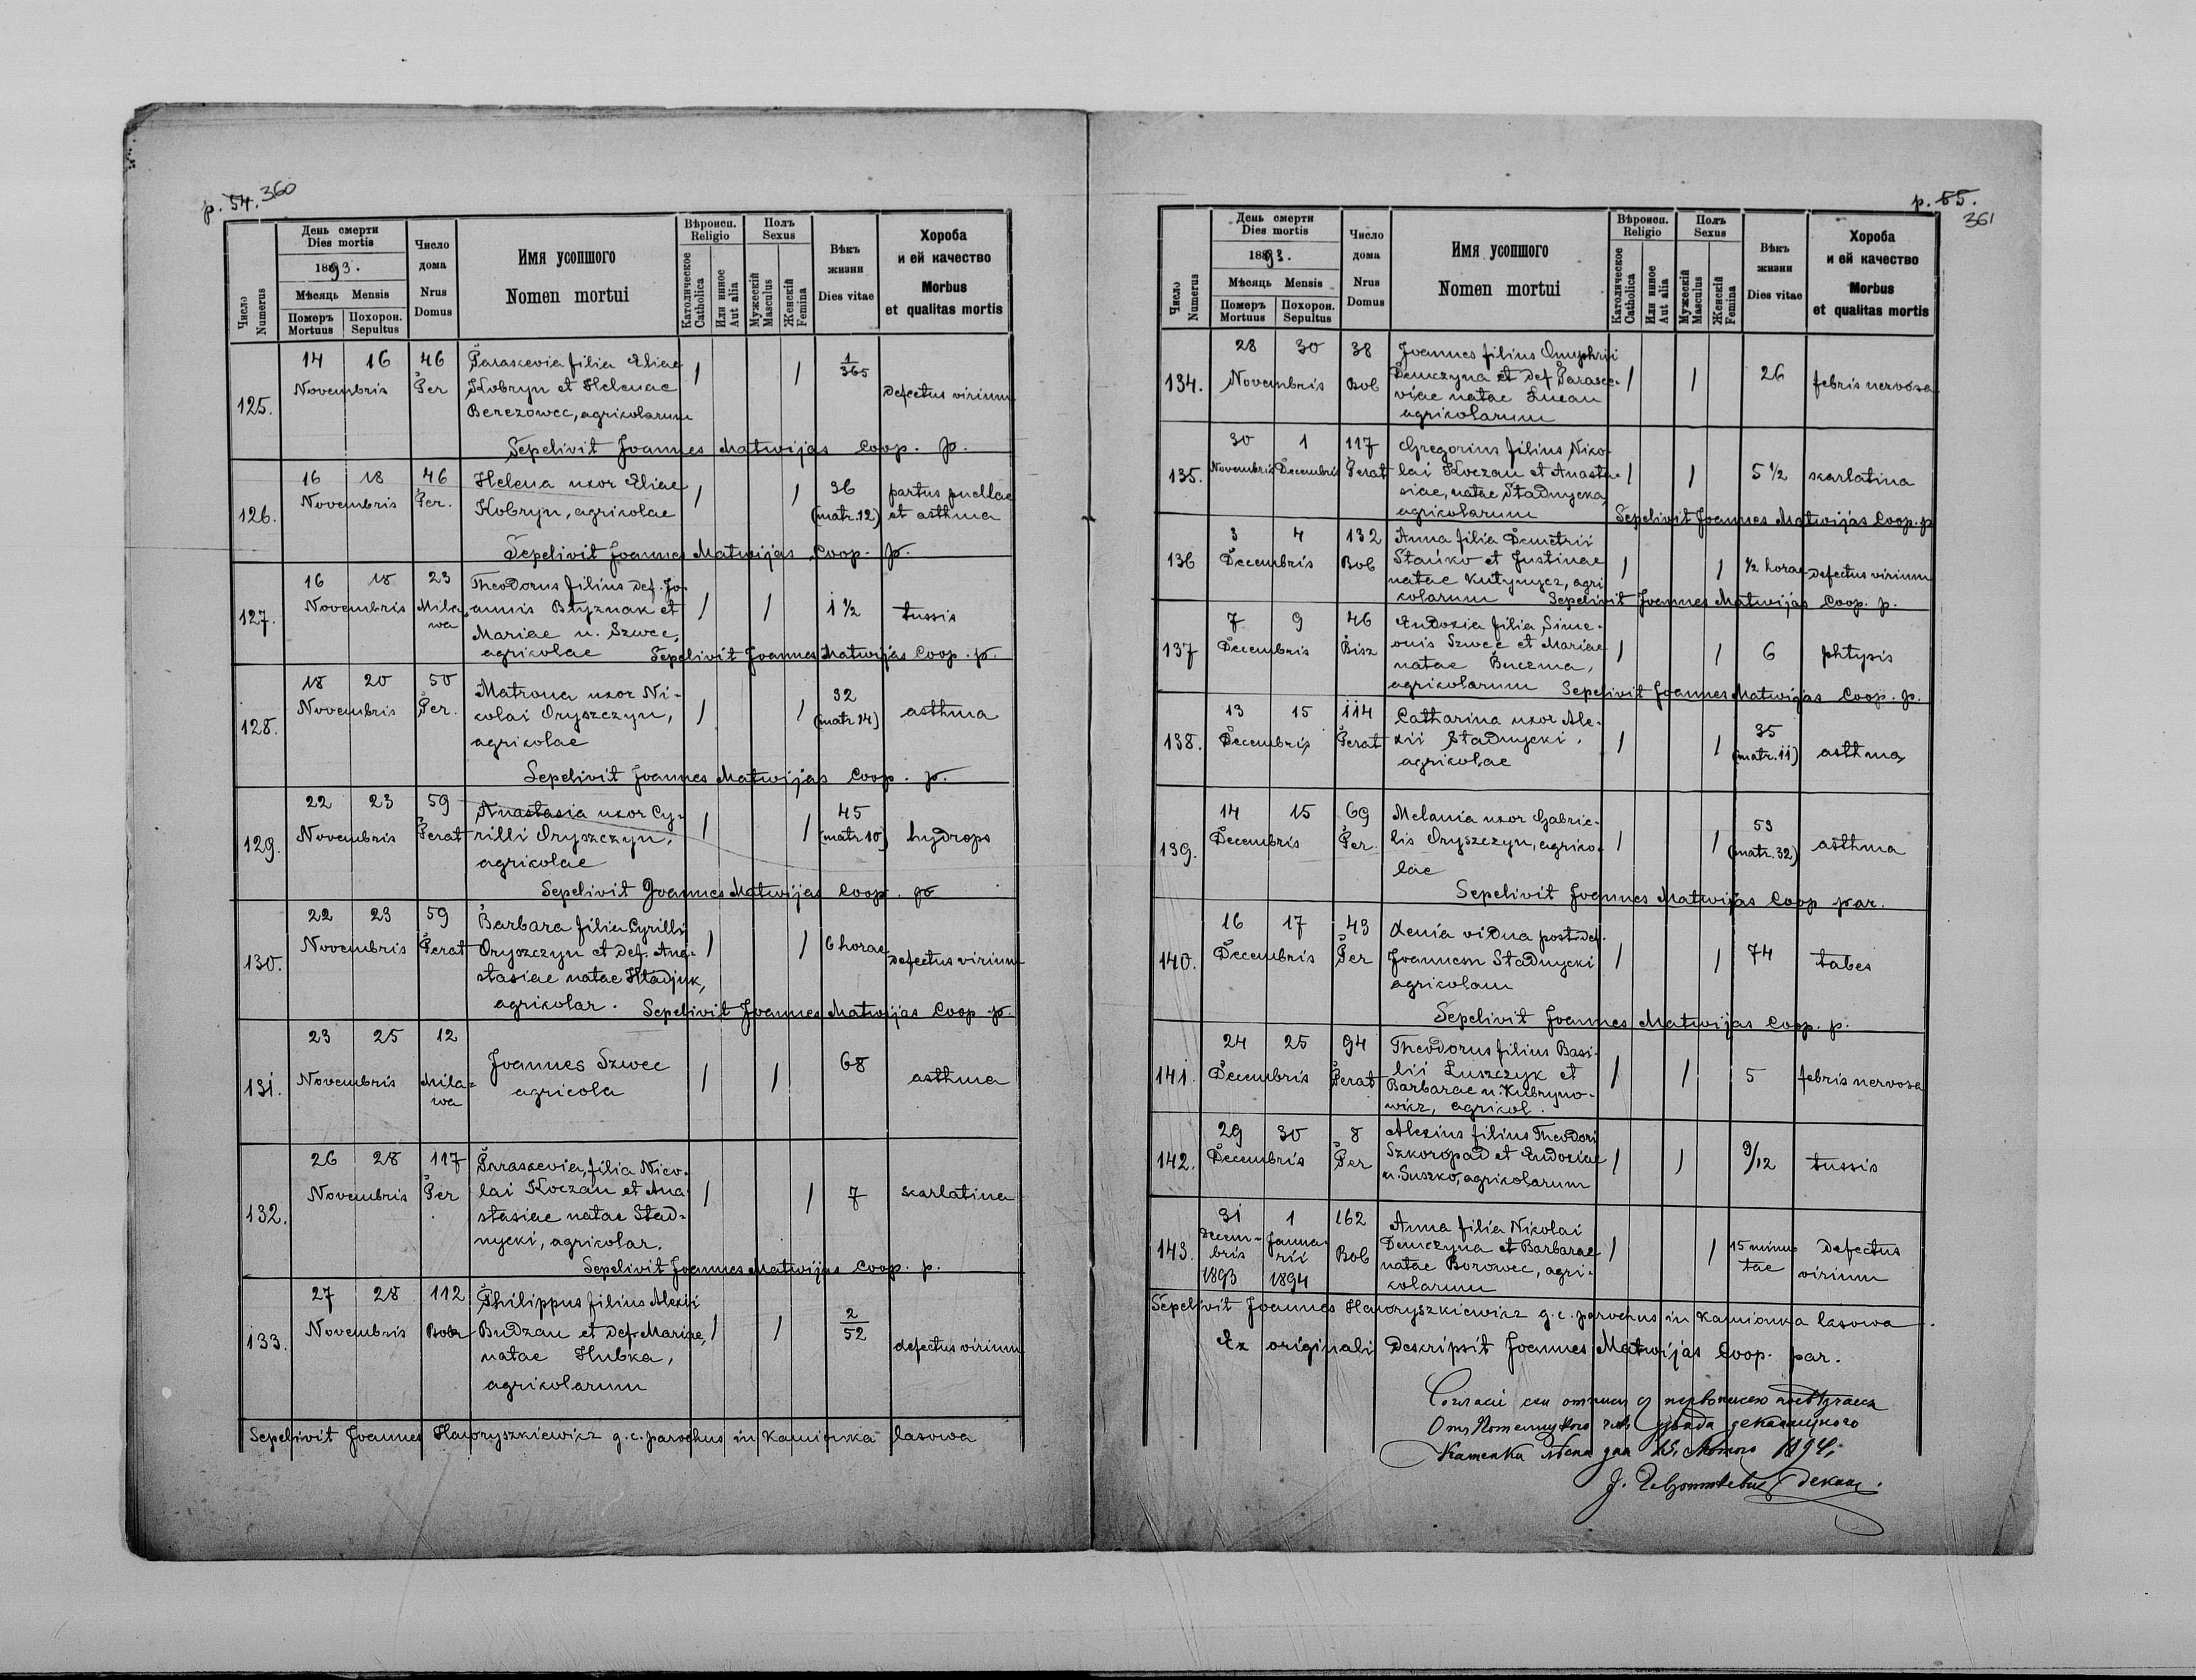 p. 54. 360
Число Numerus
День смерти
Dies mortis
1893.
Мѣсяць Mensis
Померъ Mortuus
Похорон. Sepultus
Число дома
Nrus Domus
Имя усопшого
Nomen mortui
Вѣроисп.
Religio
Католическое Catholica
Или инное Aut alia
Полъ
Sexus
Мужескій Masculus
Женскій Femina
Вѣкъ жизни
Dies vitae
Хороба
и ей качество
Morbus
et qualitas mortis
125. 14 16 Novembris 46 Per
Parascevia filia Eliae
Kobryn et Helenae
Berezowec, agricolarum
/ / 1/365 Defectus virium
Sepelivit Joannes Matwijas Coop. p.
126. 16 18 Novembris 46 Per.
Helena uxor Eliae
Kobryn, agricolae
/ / 36 (matr. 12) partus puellae
et asthma
Sepelivit Joannes Matwijas Coop. p.
127. 16 18 Novembris 23 Milawa
Theodorus filius def. Jo-
annis Blyznak et
Mariae n. Szwec,
agricolae
/ / 1 1/2 tussis
Sepelivit Joannes Matwijas Coop. p.
128. 18 20 Novembris 50 Per.
Matrona uxor Ni-
colai Oryszczyn,
agricolae
/ / 32 (matr 14) asthma
Sepelivit Joannes Matwijas Coop. p.
129. 22 23 Novembris 59 Perat
Anastasia uxor Cy-
rilli Oryszczyn,
agricolae
/ / 45 (matr 10) hydrops
Sepelivit Joannes Matwijas Coop. p.
130. 22 23 Novembris 59 Perat
Barbara filia Cyrilli
Oryszczyn et def. Ana-
stasiae natae Hladjuk,
agricolar.
/ / 6 horae defectus virium
Sepelivit Joannes Matwijas Coop. p.
131. 23 25 Novembris 12 Mila-
wa
Joannes Szwec
agricola
/ / 68 asthma
132. 26 28 Novembris 117 Per
Parascevia, filia Nico-
lai Koczan et Ana-
stasiae natae Stad-
nycki, agricolar.
/ / 7 scarlatina
Sepelivit Joannes Matwijas Coop. p.
133. 27 28 Novembris 112
Philippus filius Alexii
Budzan et def. Mariae,
natae Hubka,
agricolarum
/ / 2/52 defectus virium
Sepelivit Joannes Haworyszkiewicz g. c. parochus in Kamionka lasowa
p. 55.
361
Число Numerus
День смерти
Dies mortis
1893.
Мѣсяць Mensis
Померъ Mortuus
Похорон. Sepultus
Число дома
Nrus Domus
Имя усопшого
Nomen mortui
Вѣроисп.
Religio
Католическое Catholica
Или инное Aut alia
Полъ
Sexus
Мужескій Masculus
Женскій Femina
Вѣкъ жизни
Dies vitae
Хороба
и ей качество
Morbus
et qualitas mortis
134. 28 30 Novembris 38 Bob
Joannes filius Onuphrii
Demczyna et def Parasce-
viae natae Lucan
agricolarum
/ / 26 febris nervosa
135. 30 Novembris 1 Decembris 117 Perat
Gregorius filius Nico-
lai Koczan et Anasta-
siae, natae Stadnycka,
agricolarum
/ / 5 1/2 scarlatina
Sepelivit Joannes Matwijas Coop. p
136 3 4 Decembris 132 Bob
Anna filia Demetrii
Stańko et Justinae
natae Kutynycz, agri
colarum
/ / 1/2 horae defectus virium
Sepelivit Joannes Matwijas Coop. p.
137 7 9 Decembris 46 Bisz
Eudoxia filia Sime-
onis Szwec et Mariae
natae Buczma,
agricolarum
/ / 6 phtysis
Sepelivit Joannes Matwijas Coop. p.
138. 13 15 Decembris 114 Perat
Catharina uxor Ale-
xii Stadnycki,
agricolae
/ / 35 (matr. 11) asthma
139. 14 15 Decembris 69 Per.
Melania uxor Gabrie-
lis Oryszczyn, agrico-
lae
/ / 53 (matr. 32) asthma
Sepelivit Joannes Matwijas Coop par.
140. 16 17 Decembris 43 Per
Xenia vidua post def.
Joannem Stadnycki
agricolam
/ / 74 tabes
Sepelivit Joannes Matwijas Coop. p.
141. 24 25 Decembris 94 Perat
Theodorus filius Basi-
lii Luszczyk et
Barbarae n. Kubryno-
wicz, agricol.
/ / 5 febris nervosa
142. 29 30 Decembris 8 Per
Alexius filius Theodori
Szkoropad et Eudoxiae
n. Suszko, agricolarum
/ / 9/12 tussis
143. 31 Decem-
bris 1893 1 Janua-
rii 1894 162 Bob
Anna filia Nikolai
Demczyna et Barbarae
natae Borowec, agri-
colarum
/ / 15 minu-
tae Defectus
virium
Sepelivit Joannes Haworyszkiewicz g. c. parochus in Kamionka lasowa.
Ex originali Descripsit Joannes Matwijas Coop. par.
деканального
Каменка 1894
декан.